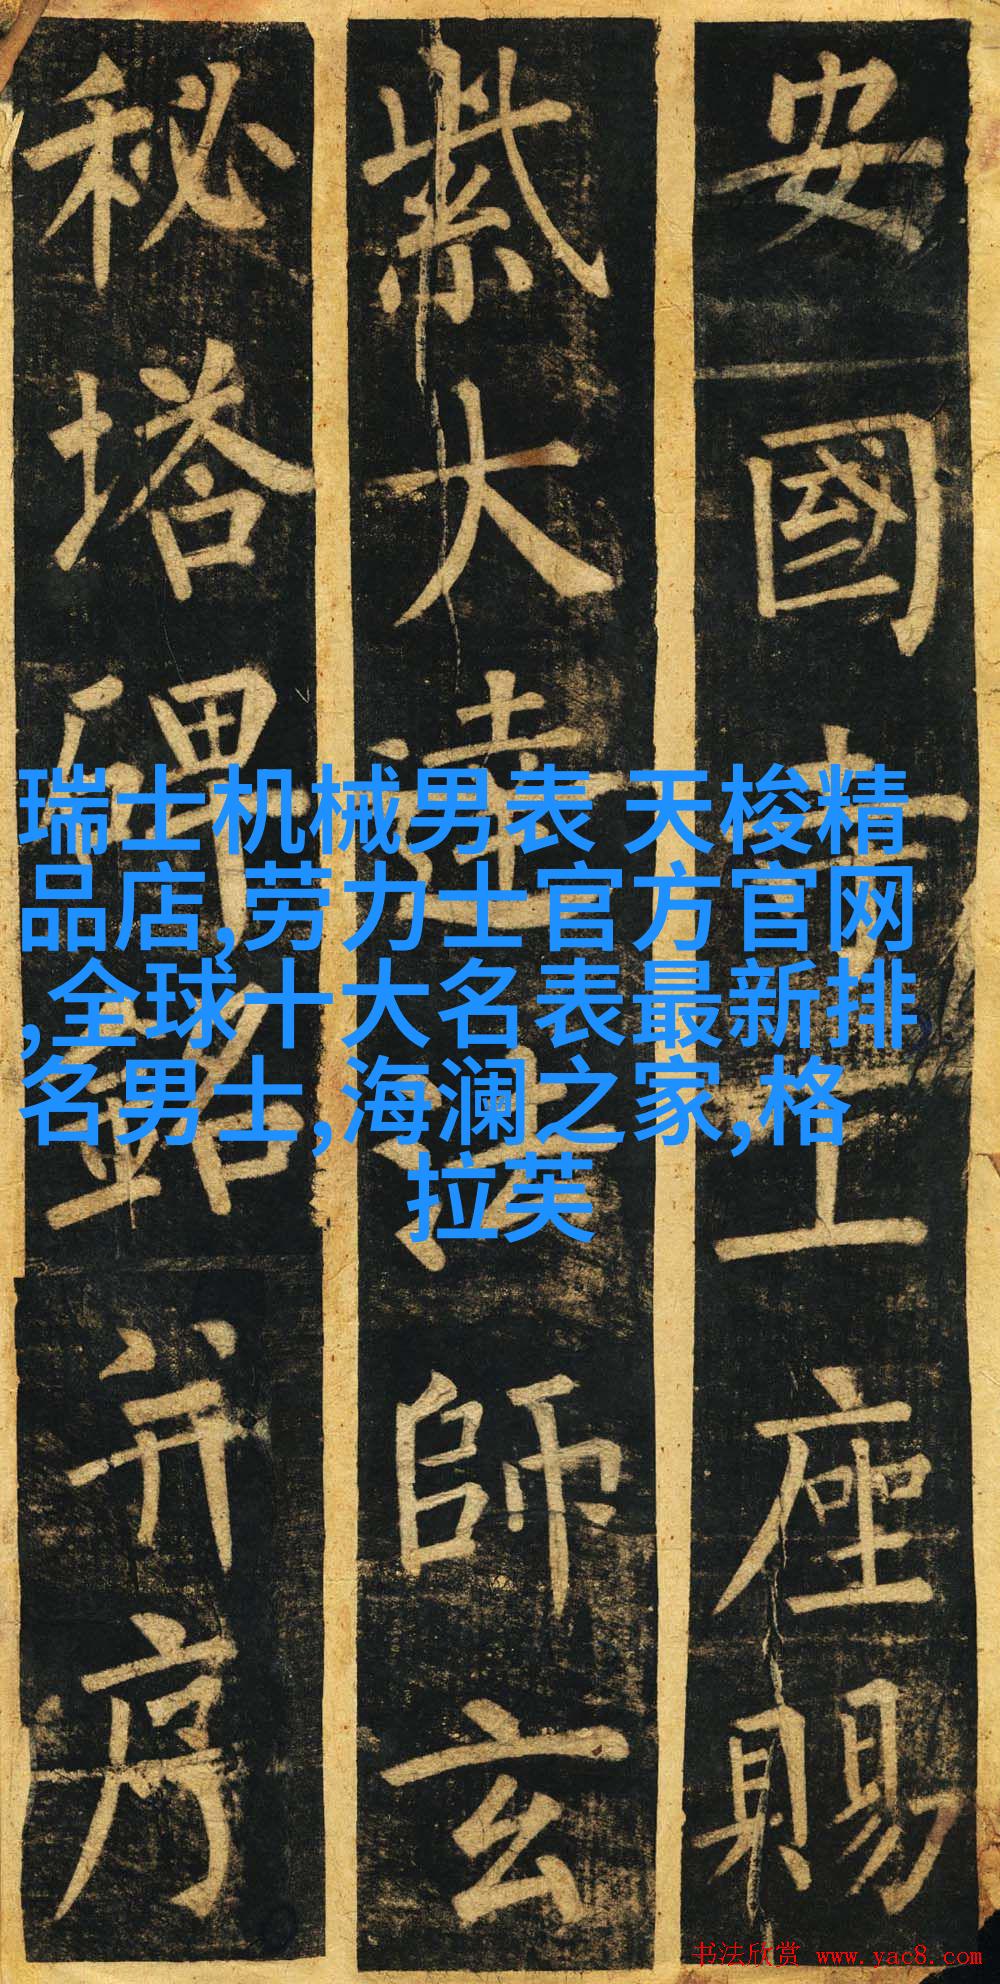 安國寺上座賜
紫大達法師玄
秘塔碑銘并序
瑞士机械男表 天梭精
品店,劳力士官方官网
,全球十大名表最新排
名男士,海澜之家,格
拉芙
书法欣赏 www.yac8.com